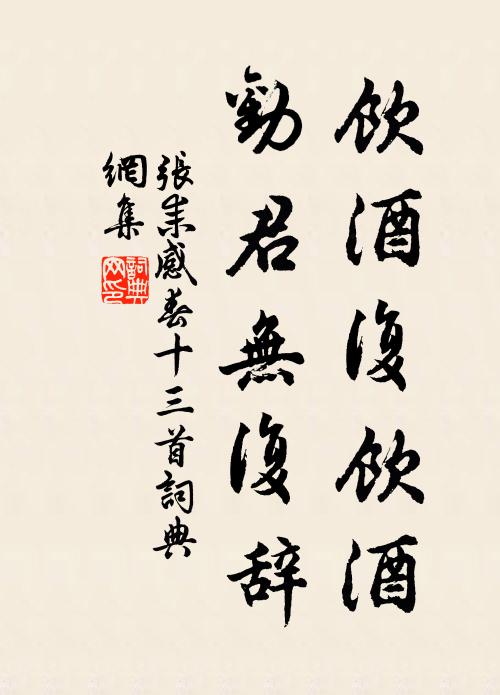 飲酒復飲酒
勸君無復辞
張耒感春十三首詞典
網集
詞典網印